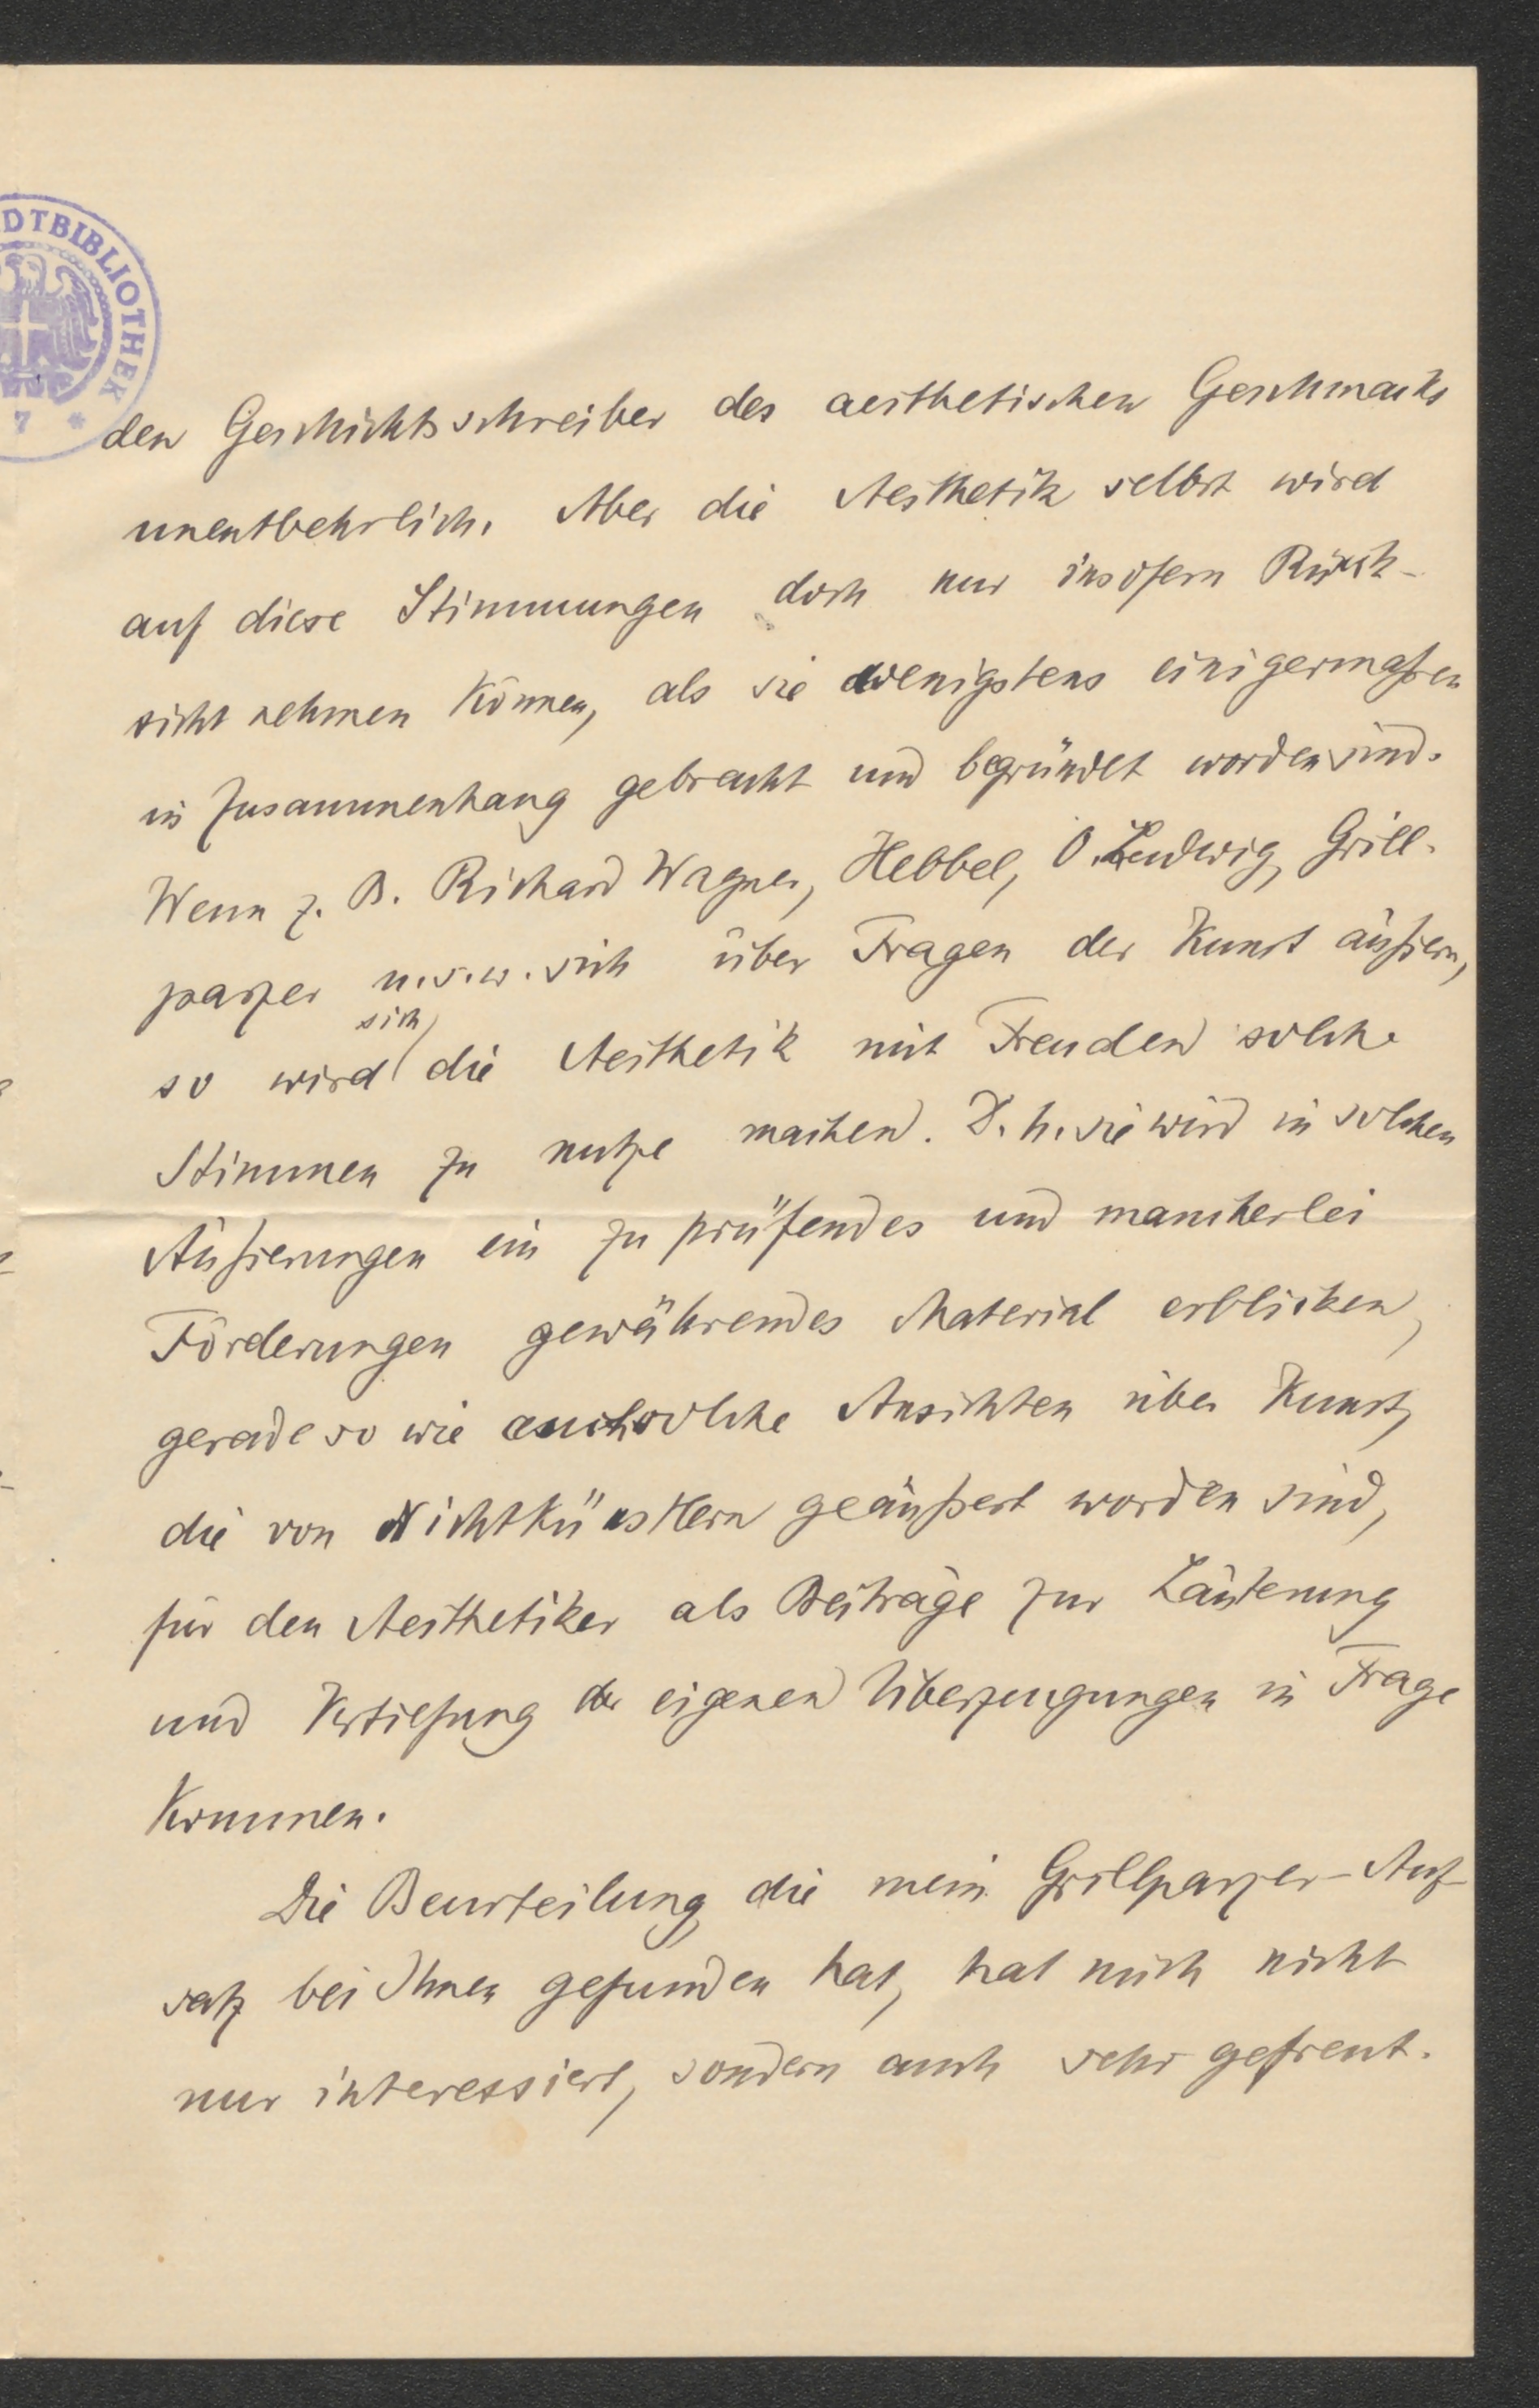 DTBIBLIOTHEK
7 *
den Geschichtsschreiber des aesthetischen Geschmacks
unentbehrlich. Aber die Aesthetik selbst wird
auf diese Stimmungen doch nur insofern Rück-
sicht nehmen können, als sie wenigstens einigermaßen
in Zusammenhang gebracht und begründet worden sind.
Wenn z. B. Richard Wagner, Hebbel, O. Ludwig, Grill-
parzer u.s.w. sich über Fragen der Kunst äußern,
sich
so wird die Aesthetik mit Freuden solche
Stimmen zu nutze machen. D. h. sie wird in solchen
Äußerungen ein zu prüfendes und mancherlei
Förderungen gewährendes Material erblicken,
gerade so wie auch solche Ansichten über Kunst,
die von Nichtkünstlern geäußert worden sind,
für den Aesthetiker als Beiträge zur Läuterung
und Vertiefung der eigenen Überzeugungen in Frage
kommen.
Die Beurteilung, die mein Grillparzer-Auf-
satz bei Ihnen gefunden hat, hat mich nicht
nur interessiert, sondern auch sehr gefreut.